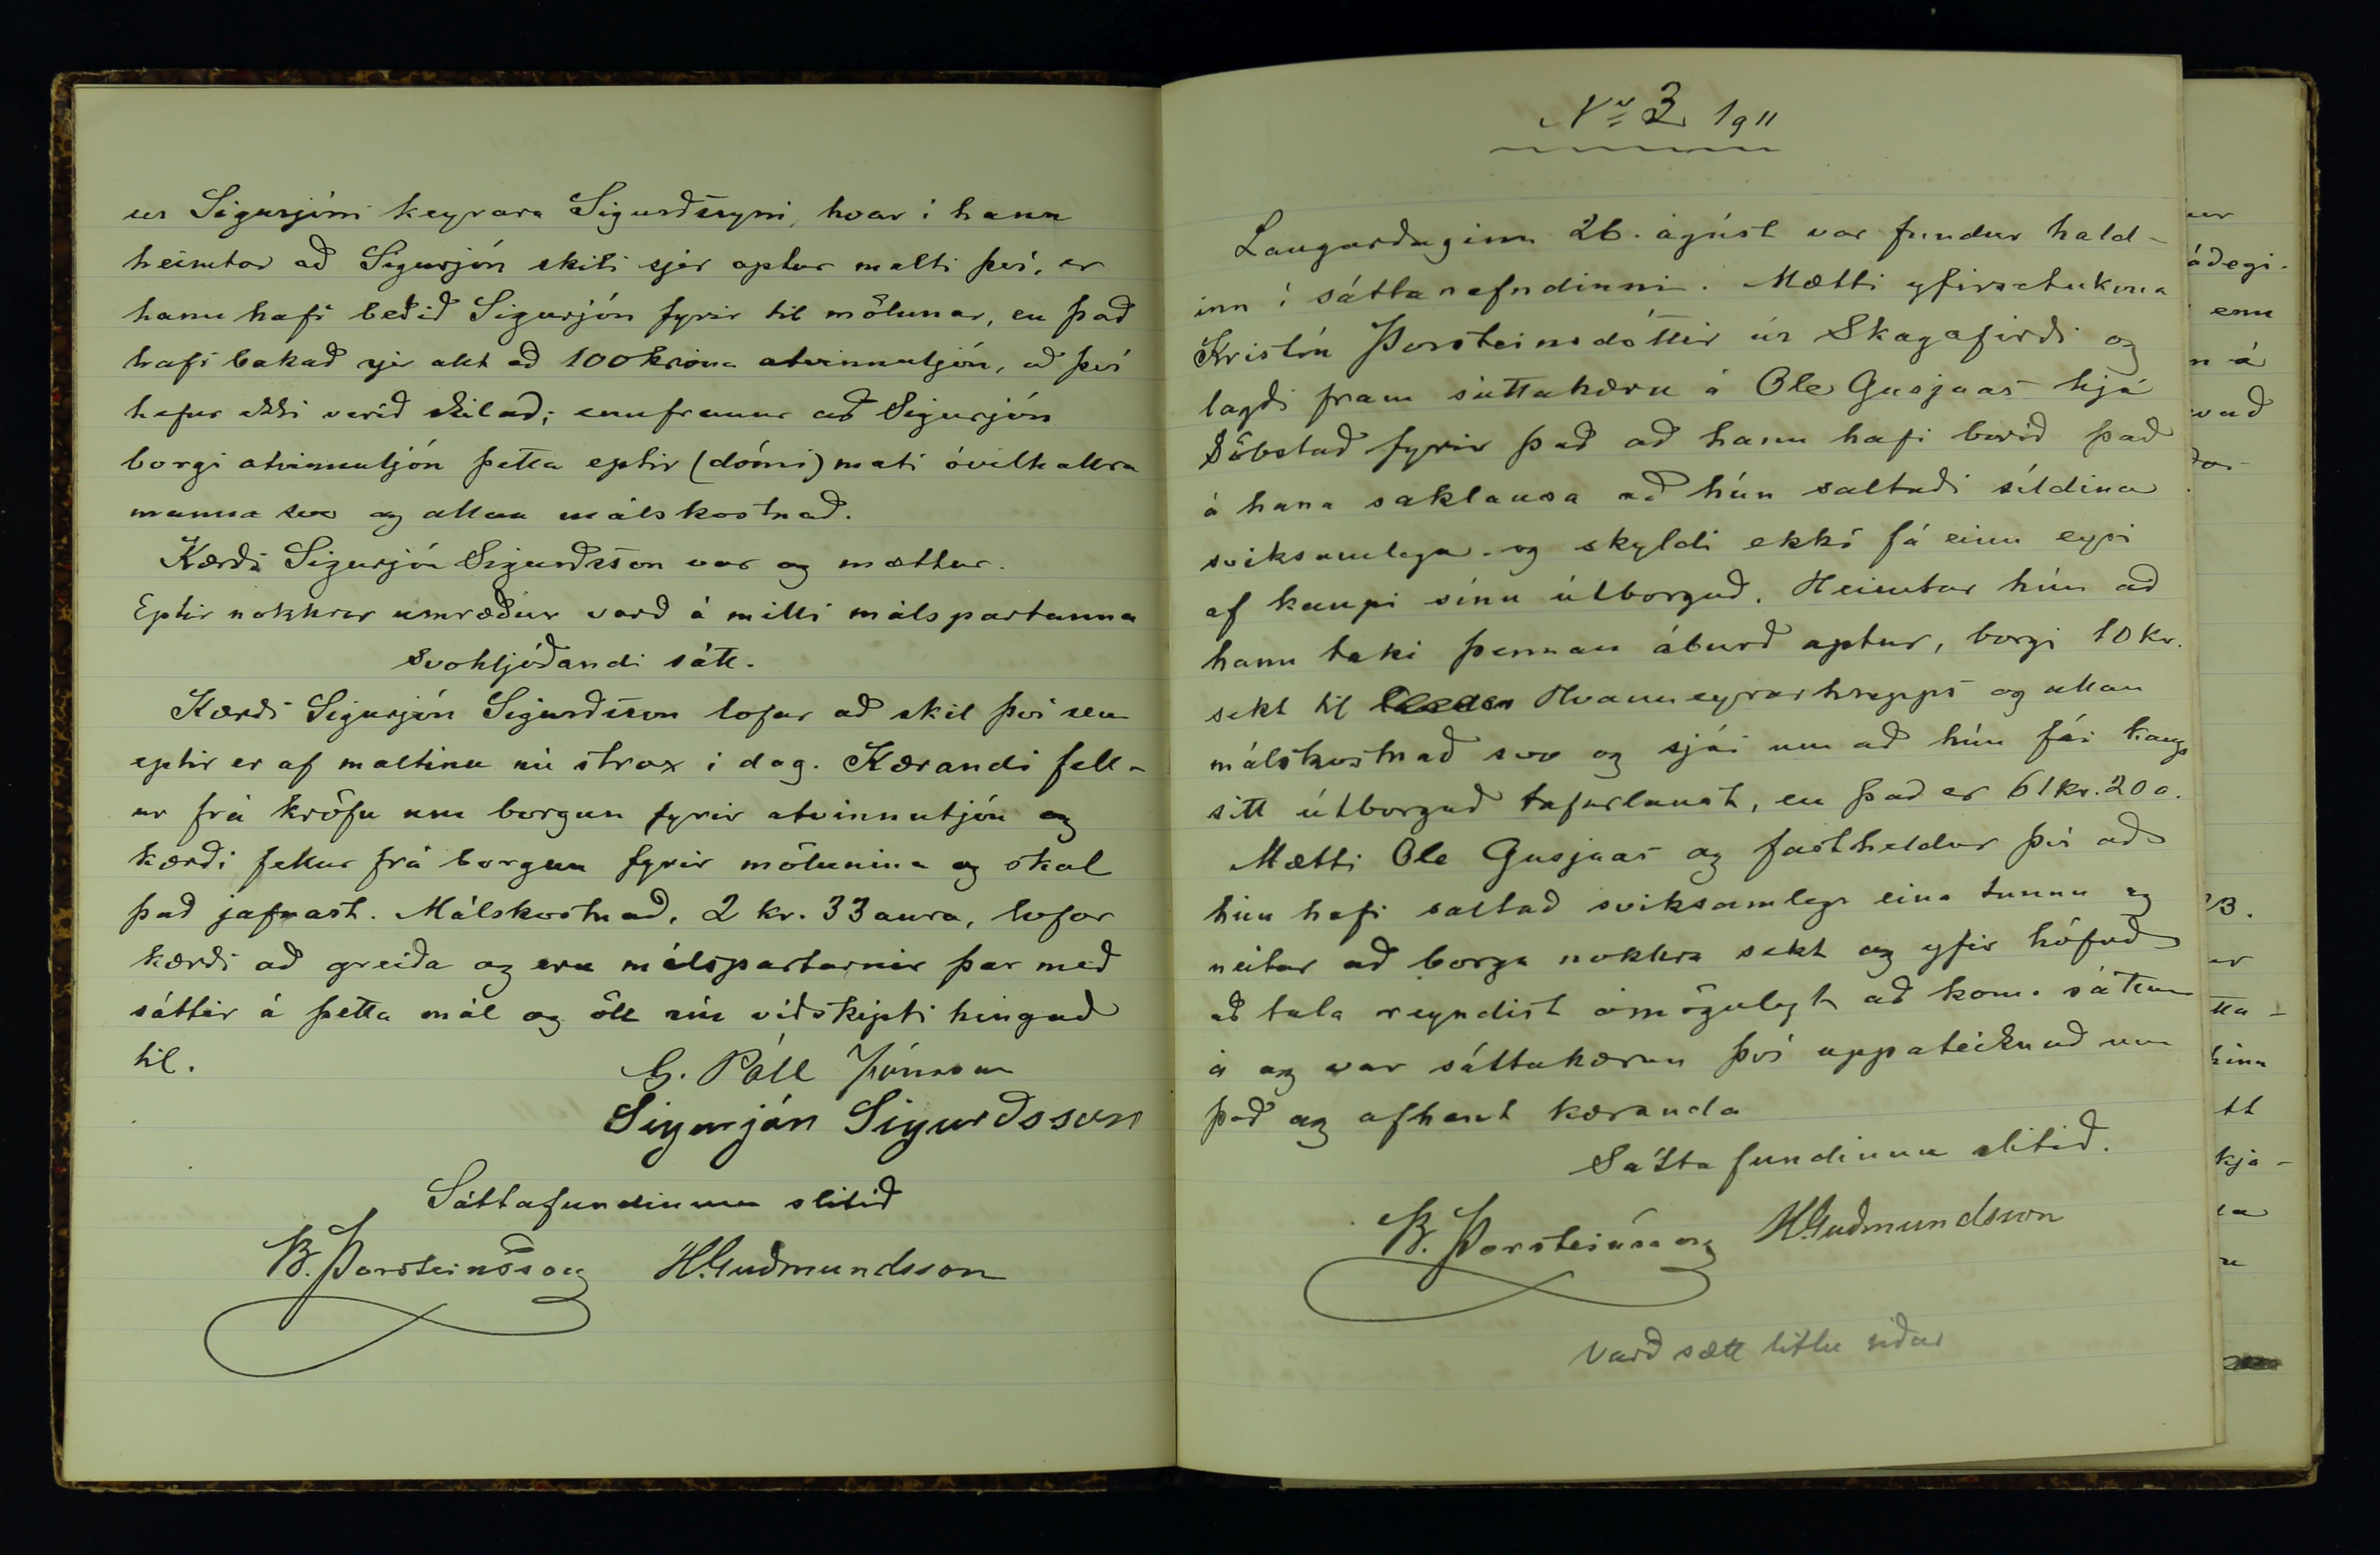 ur Sigurjóni keyrara Sigurðssyni, hvar í hann
heimtar að Sigurjón skili sjer aptur malti því, er
hann hafi beðið Sigurjón fyrir til mölunar, en það
hafi bakað sjer allt að 100 króna atvinnutjón, að því
hefur ekki verið skilað; ennfremur að Sigurjón
borgi atvinnutjón þetta eptir (dómi) mati óvilhallra
manna svo og allan málskostnað.
Kærði Sigurjón Sigurðsson var og mættur.
Eptir nokkrar umræður varð á milli málspartanna
svohljóðandi sátt.
Kærði Sigurjón Sigurðsson lofar að skil því sem
eptir er af maltinu nú strax í dag. Kærandi fell-
ur frá kröfu um borgun fyrir atvinnutjón og
kærði fellur frá borgun fyrir mölunina og skal
það jafnast. Málskostnað, 2 kr. 33 aura, lofar
kærði að greiða og eru málspartarnir þar með
sáttir á þetta mál og öll sín viðskipti hingað
til.
G. Páll Jónsson
Sigurjón Sigurðsson
Sáttafundinum slitið
B. Þorsteinsson H. Guðmundsson
No 3 1911
Laugardaginn 26. ágúst var fundur hald-
inn í sáttanefndinni. Mætti yfirsetukona
Kristín Þorsteinsdóttir úr Skagafirði og
lagði fram sáttakæru á Ole Gusjaas hjá
Söbstad fyrir það að hann hafi borið það
á hana saklausa að hún saltaði síldina
sviksamlega og skyldi ekki fá einn eyri
af kaupi sínu útborgað. Heimtar hún að
hann taki þennan áburð aptur, borgi 10 kr.
sekt til Hvanneyrarhrepps og allan
málskostnað svo og sjái um að hún fái kaup
sitt útborgað tafarlaust, en það er 61 kr. 20 a.
Mætti Ole Gusjaas og fastheldur því að
hún hafi saltað sviksamlega eina tunnu og
neitar að borga nokkra sekt og yfir höfuð
að tala reyndist ómögulegt að koma sáttum
á og var sáttakæran því uppateiknað um
það og afhent kæranda
Sáttafundinum slitið.
B. Þorsteinsson H. Guðmundsson
Varð sætt litlu síðar